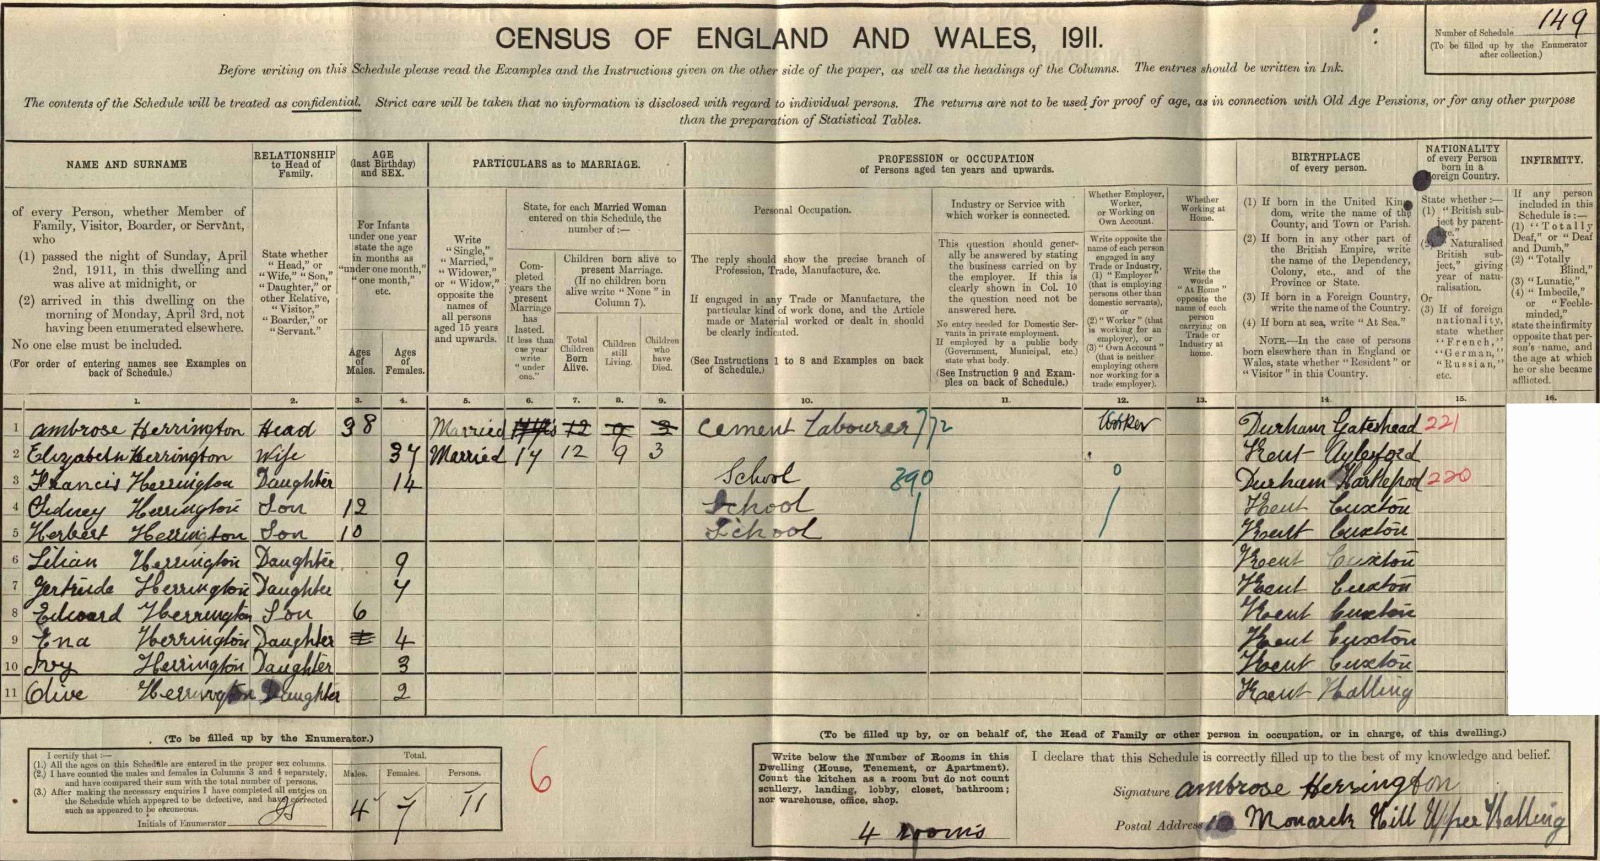 149
Number of Schedule
(To be filled up by the Enumerator
after collection.)
CENSUS OF ENGLAND AND WALES, 1911.
Before writing on this Schedule please read the Examples and the Instructions given on the other side of the paper, as well as the headings of the Columns. The entries should be written in Ink.
The contents of the Schedule will be treated as confidential. Strict care will be taken that no information is disclosed with regard to individual persons. The returns are not to be used for proof of age, as in connection with Old Age Pensions, or for any other purpose
than the preparation of Statistical Tables.
NAME AND SURNAME
of every Person, whether Member of
Family, Visitor, Boarder, or Servant,
who
(1) passed the night of Sunday, April
2nd, 1911, in this dwelling and
was alive at midnight, or
(2) arrived in this dwelling on the
morning of Monday, April 3rd, not
having been enumerated elsewhere.
No one else must be included.
(For order of entering names see Examples on
back of Schedule.)
RELATIONSHIP
to Head of
Family.
State whether
"Head," or
"Wife," "Son,"
"Daughter," or
other Relative,
"Visitor,"
"Boarder," or
"Servant."
AGE
(last Birthday)
and SEX.
For Infants
under one year
state the age
in months as
"under one month,"
"one month,"
etc.
Ages
of
Males.
Ages
of
Females.
PARTICULARS as to MARRIAGE.
Write
"Single,"
"Married,"
"Widower,"
or "Widow,"
opposite the
names of
all persons
aged 15 years
and upwards.
State, for each Married Woman
entered on this Schedule, the
number of :—
Com-
pleted
years the
present
Marriage
has
lasted.
If less than
one year
write
"under
one."
Children born alive to
present Marriage.
(If no children born
alive write "None" in
Column 7).
Total
Children
Born
Alive.
Children
still
Living.
Children
who
have
Died.
PROFESSION or OCCUPATION
of Persons aged ten years and upwards.
Personal Occupation.
The reply should show the precise branch of
Profession, Trade, Manufacture, &c.
If engaged in any Trade or Manufacture, the
particular kind of work done, and the Article
made or Material worked or dealt in should
be clearly indicated.
(See Instructions 1 to 8 and Examples on back
of Schedule.)
Industry or Service with
which worker is connected.
This question should gener-
ally be answered by stating
the business carried on by
the employer. If this is
clearly shown in Col. 10
the question need not be
answered here.
No entry needed for Domestic Ser-
vants in private employment.
If employed by a public body
(Government, Municipal, etc.)
state what body.
(See Instruction 9 and Exam-
ples on back of Schedule.)
Whether Employer,
Worker,
or Working on
Own Account.
Write opposite the
name of each person
engaged in any
Trade or Industry,
(1) "Employer"
(that is employing
persons other than
domestic servants),
or
(2) "Worker" (that
is working for an
employer), or
(3) "Own Account"
(that is neither
employing others
nor working for a
trade employer).
Whether
Working at
Home.
Write the
words
"At Home"
opposite the
name of each
person
carrying on
Trade or
Industry at
home.
BIRTHPLACE
of every person.
(1) If born in the United King-
dom, write the name of the
County, and Town or Parish.
(2) If born in any other part of
the British Empire, write
the name of the Dependency,
Colony, etc., and of the
Province or State.
(3) If born in a Foreign Country,
write the name of the Country.
(4) If born at sea, write "At Sea."
NOTE.—In the case of persons
born elsewhere than in England or
Wales, state whether "Resident" or
"Visitor" in this Country.
NATIONALITY
of every Person
born in a
Foreign Country.
State whether :—
(1) "British sub-
ject by parent-
age,"
(2) "Naturalised
British sub-
ject," giving
year of natu-
ralisation.
Or
(3) If of foreign
nationality,
state whether
"French,"
"German,"
"Russian,"
etc.
INFIRMITY.
If any person
included in this
Schedule is :—
(1) "Totally
Deaf," or "Deaf
and Dumb,"
(2) "Totally
Blind,"
(3) "Lunatic,"
(4) "Imbecile,"
or "Feeble-
minded,"
state the infirmity
opposite that per-
son's name, and
the age at which
he or she became
afflicted.
1. 2. 3. 4. 5. 6. 7. 8. 9. 10. 11. 12. 13. 14. 15. 16.
1 Ambrose Herrington Head 38 Married 12 9 3 Cement Labourer 772 Worker Durham Gateshead 221
2 Elizabeth Herrington Wife 37 Married 17 12 9 3 Kent Aylesford
3 Francis Herrington Daughter 14 School 390 0 Durham Hartlepool 220
4 Sidney Herrington Son 12 School Kent Cuxton
5 Herbert Herrington Son 10 School Kent Cuxton
6 Lilian Herrington Daughter 9 Kent Cuxton
7 Gertrude Herrington Daughter 7 Kent Cuxton
8 Edward Herrington Son 6 Kent Cuxton
9 Ena Herrington Daughter 4 Kent Cuxton
10 Ivy Herrington Daughter 3 Kent Cuxton
11 Olive Herrington Daughter 2 Kent Halling
(To be filled up by the Enumerator.)
I certify that :—
(1.) All the ages on this Schedule are entered in the proper sex columns.
(2.) I have counted the males and females in Columns 3 and 4 separately,
and have compared their sum with the total number of persons.
(3.) After making the necessary enquiries I have completed all entries on
the Schedule which appeared to be defective, and have corrected
such as appeared to be erroneous.
Initials of Enumerator
Total.
Males. Females. Persons.
4 7 11
6
(To be filled up by, or on behalf of, the Head of Family or other person in occupation, or in charge, of this dwelling.)
Write below the Number of Rooms in this
Dwelling (House, Tenement, or Apartment).
Count the kitchen as a room but do not count
scullery, landing, lobby, closet, bathroom;
nor warehouse, office, shop.
4 rooms
I declare that this Schedule is correctly filled up to the best of my knowledge and belief.
Signature Ambrose Herrington
Postal Address 10 Monarch Hill Upper Halling